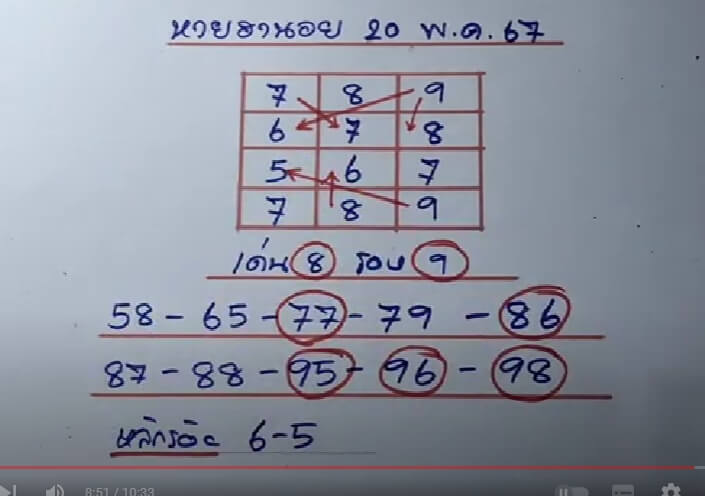 หวยฮานอย 20 พ.ค. 67
7 8 9
6 7 8
5 6 7
7 8 9
เด่น 8 รอง 9
58 - 65 - 77 - 79 - 86
87 - 88 - 95 - 96 - 98
หลักร้อย 6-5
8:51 / 10:33